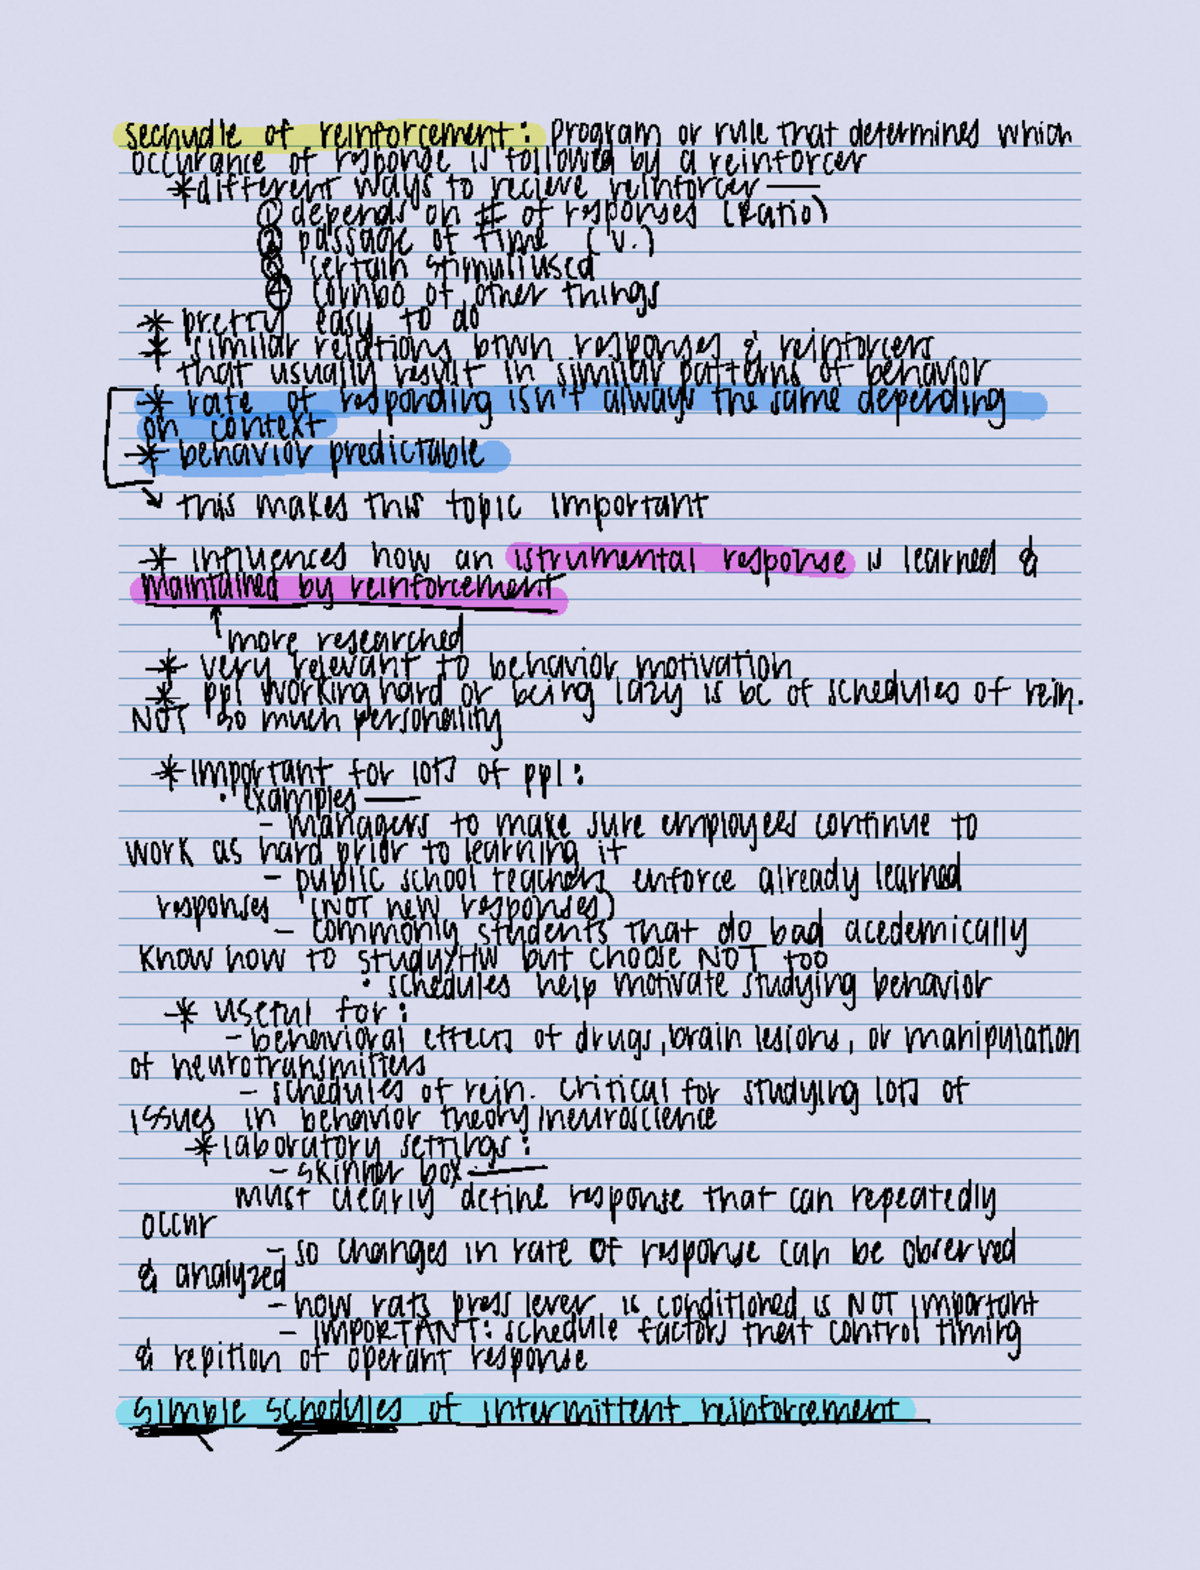 sechudle of reinforcement: program or rule that determines which
occurance of rsponse is followed by a reinforcer
*different ways to recieve reinforcer —
① depends on # of responses (Ratio)
② passage of time (V.)
③ certain stimuli used
④ combo of other things
* pretty easy to do
* similar relations btwn responses & reinforcers
that usually result in similar patterns of behavior
* rate of responding isn't always the same depending
on context
* behavior predictable
↘ this makes this topic important
* influences how an istrumental response is learned &
maintained by reinforcement
↑ more researched
* very relevant to behavior motivation
* ppl working hard or being lazy is bc of schedules of rein.
NOT so much personality
* important for lots of ppl:
• examples —
- managers to make sure employees continue to
work as hard prior to learning it
- public school teachers enforce already learned
responses (NOT new responses)
- commonly students that do bad acedemically
know how to study/HW but choose NOT too
• schedules help motivate studying behavior
* useful for:
- behavioral effects of drugs, brain lesions, or manipulation
of neurotransmitters
- schedules of rein. critical for studying lots of
issues in behavior theory/neuroscience
* laboratory settings:
- skinner box —
must clearly define response that can repeatedly
occur
- so changes in rate of response can be observed
& analyzed
- how rats press lever is conditioned is NOT important
- IMPORTANT: schedule factors that control timing
& repition of operant response
simple schedules of intermittent reinforcement